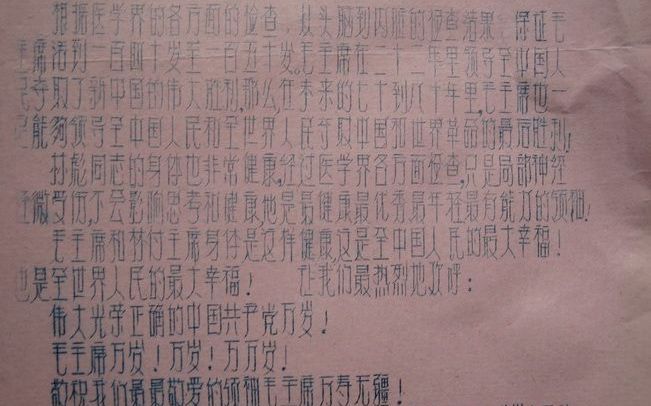 根据医学界的各方面的检查,从头脑到内脏的检查结果:保证毛
主席活到一百四十岁至一百五十岁。毛主席在二十二年里领导全中国人
民夺取了新中国的伟大胜利,那么在未来的七十到八十年里,毛主席也一
定能够领导全中国人民和全世界人民夺取中国和世界革命的最后胜利!
林彪同志的身体也非常健康,经过医学界各方面检查,只是局部神经
轻微受伤,不会影响思考和健康,他是最健康最优秀最年轻最有能力的领袖!
毛主席和林付主席身体是这样健康这是全中国人民的最大幸福!
也是全世界人民的最大幸福! 让我们最热烈地欢呼:
伟大光荣正确的中国共产党万岁!
毛主席万岁!万岁!万万岁!
敬祝我们最最敬爱的领袖毛主席万寿无疆!